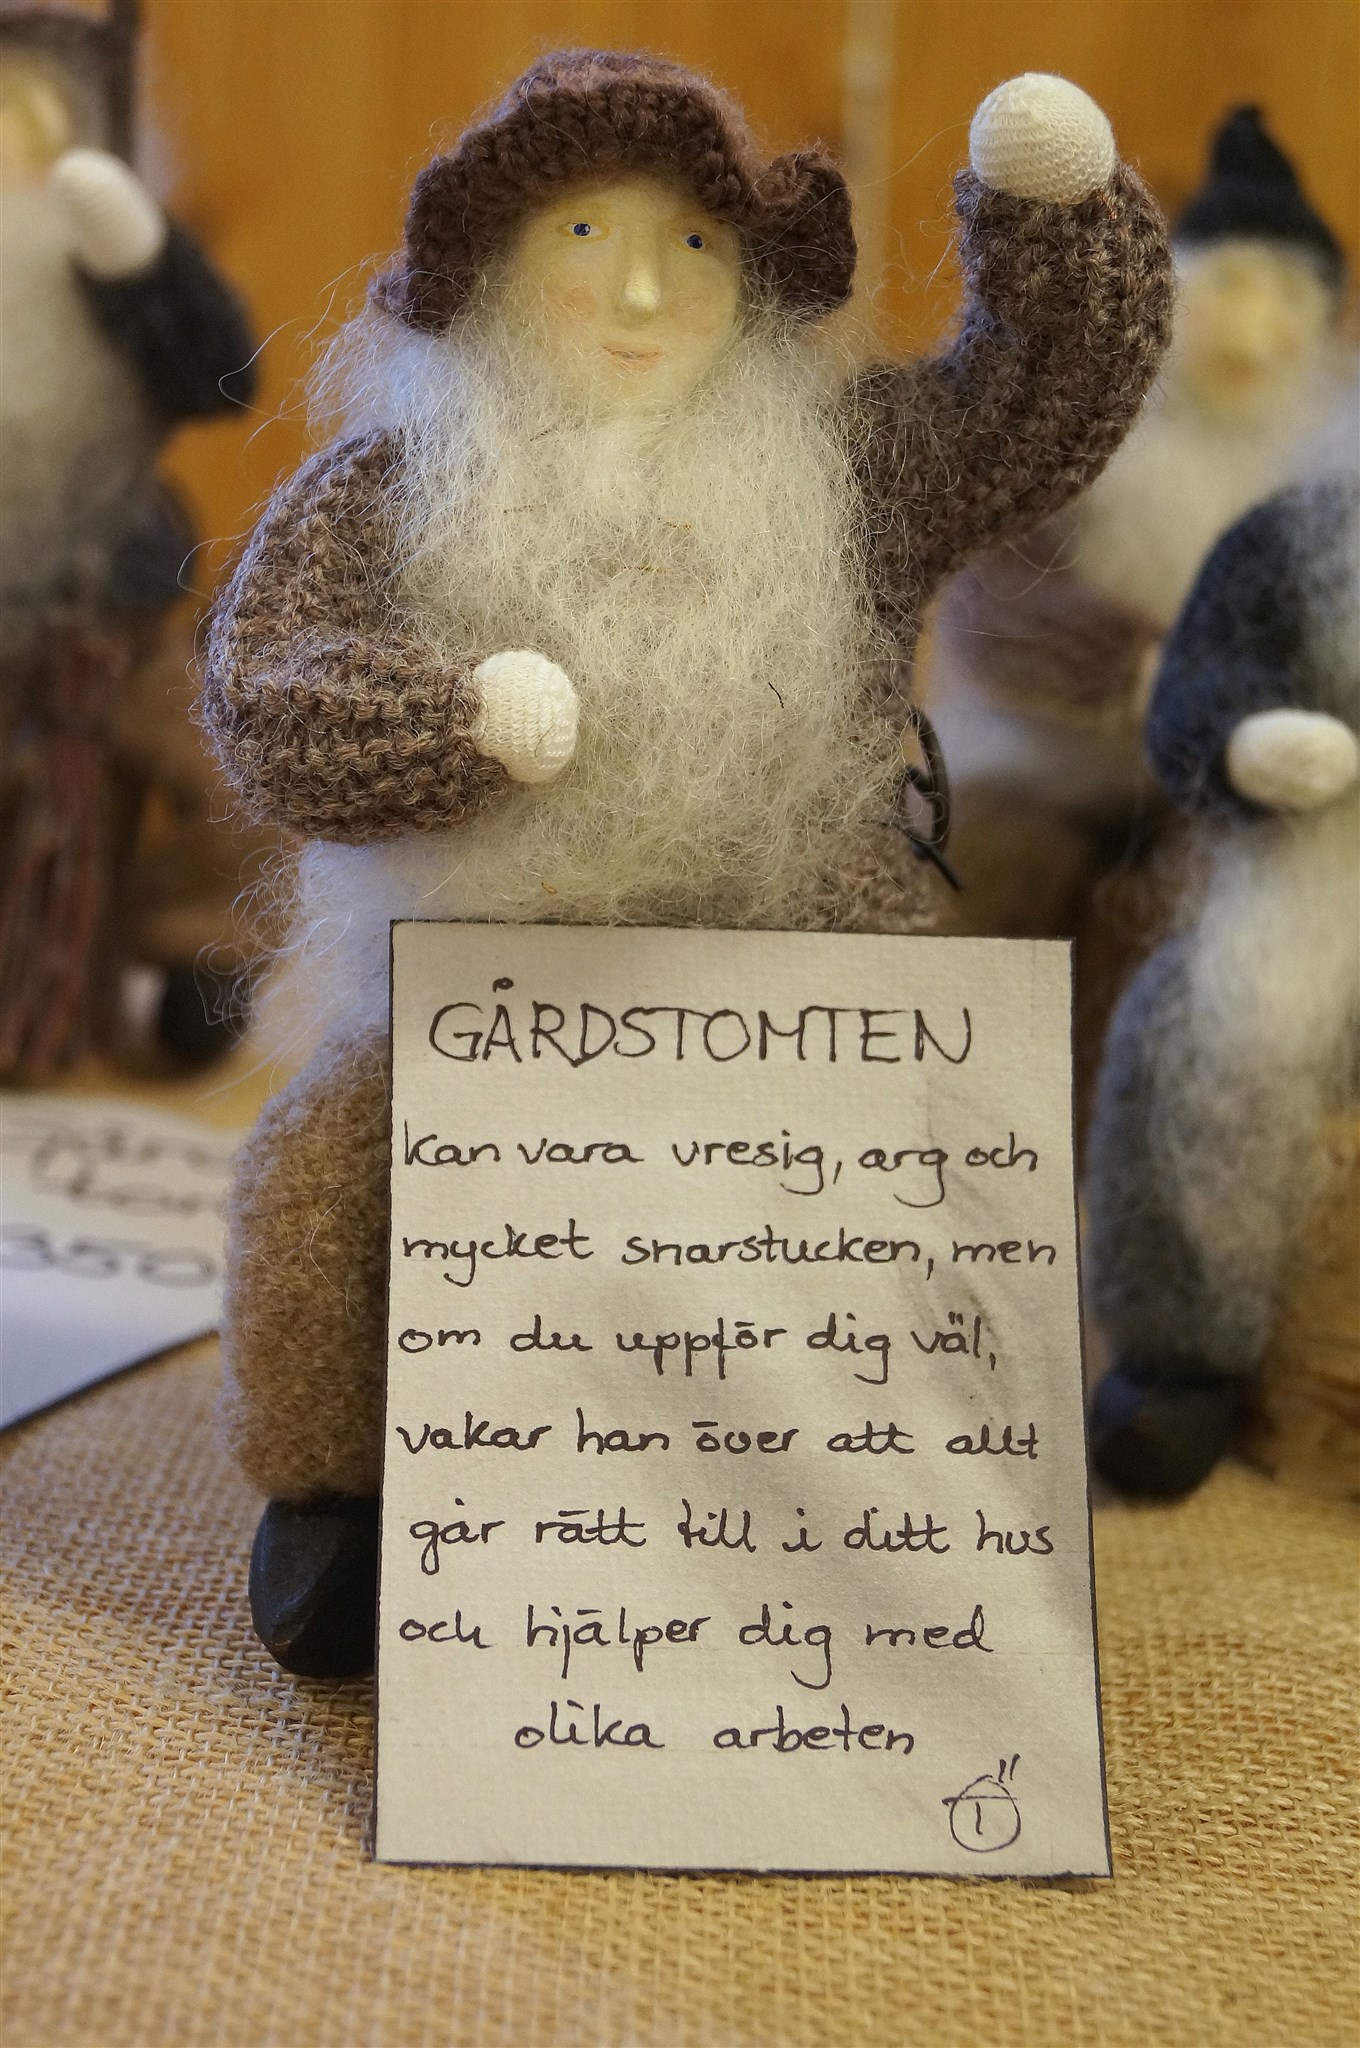 GÅRDSTOMTEN
kan vara vresig, arg och
mycket snarstucken, men
om du uppför dig väl,
vakar han över att allt
går rätt till i ditt hus
och hjälper dig med
olika arbeten
350